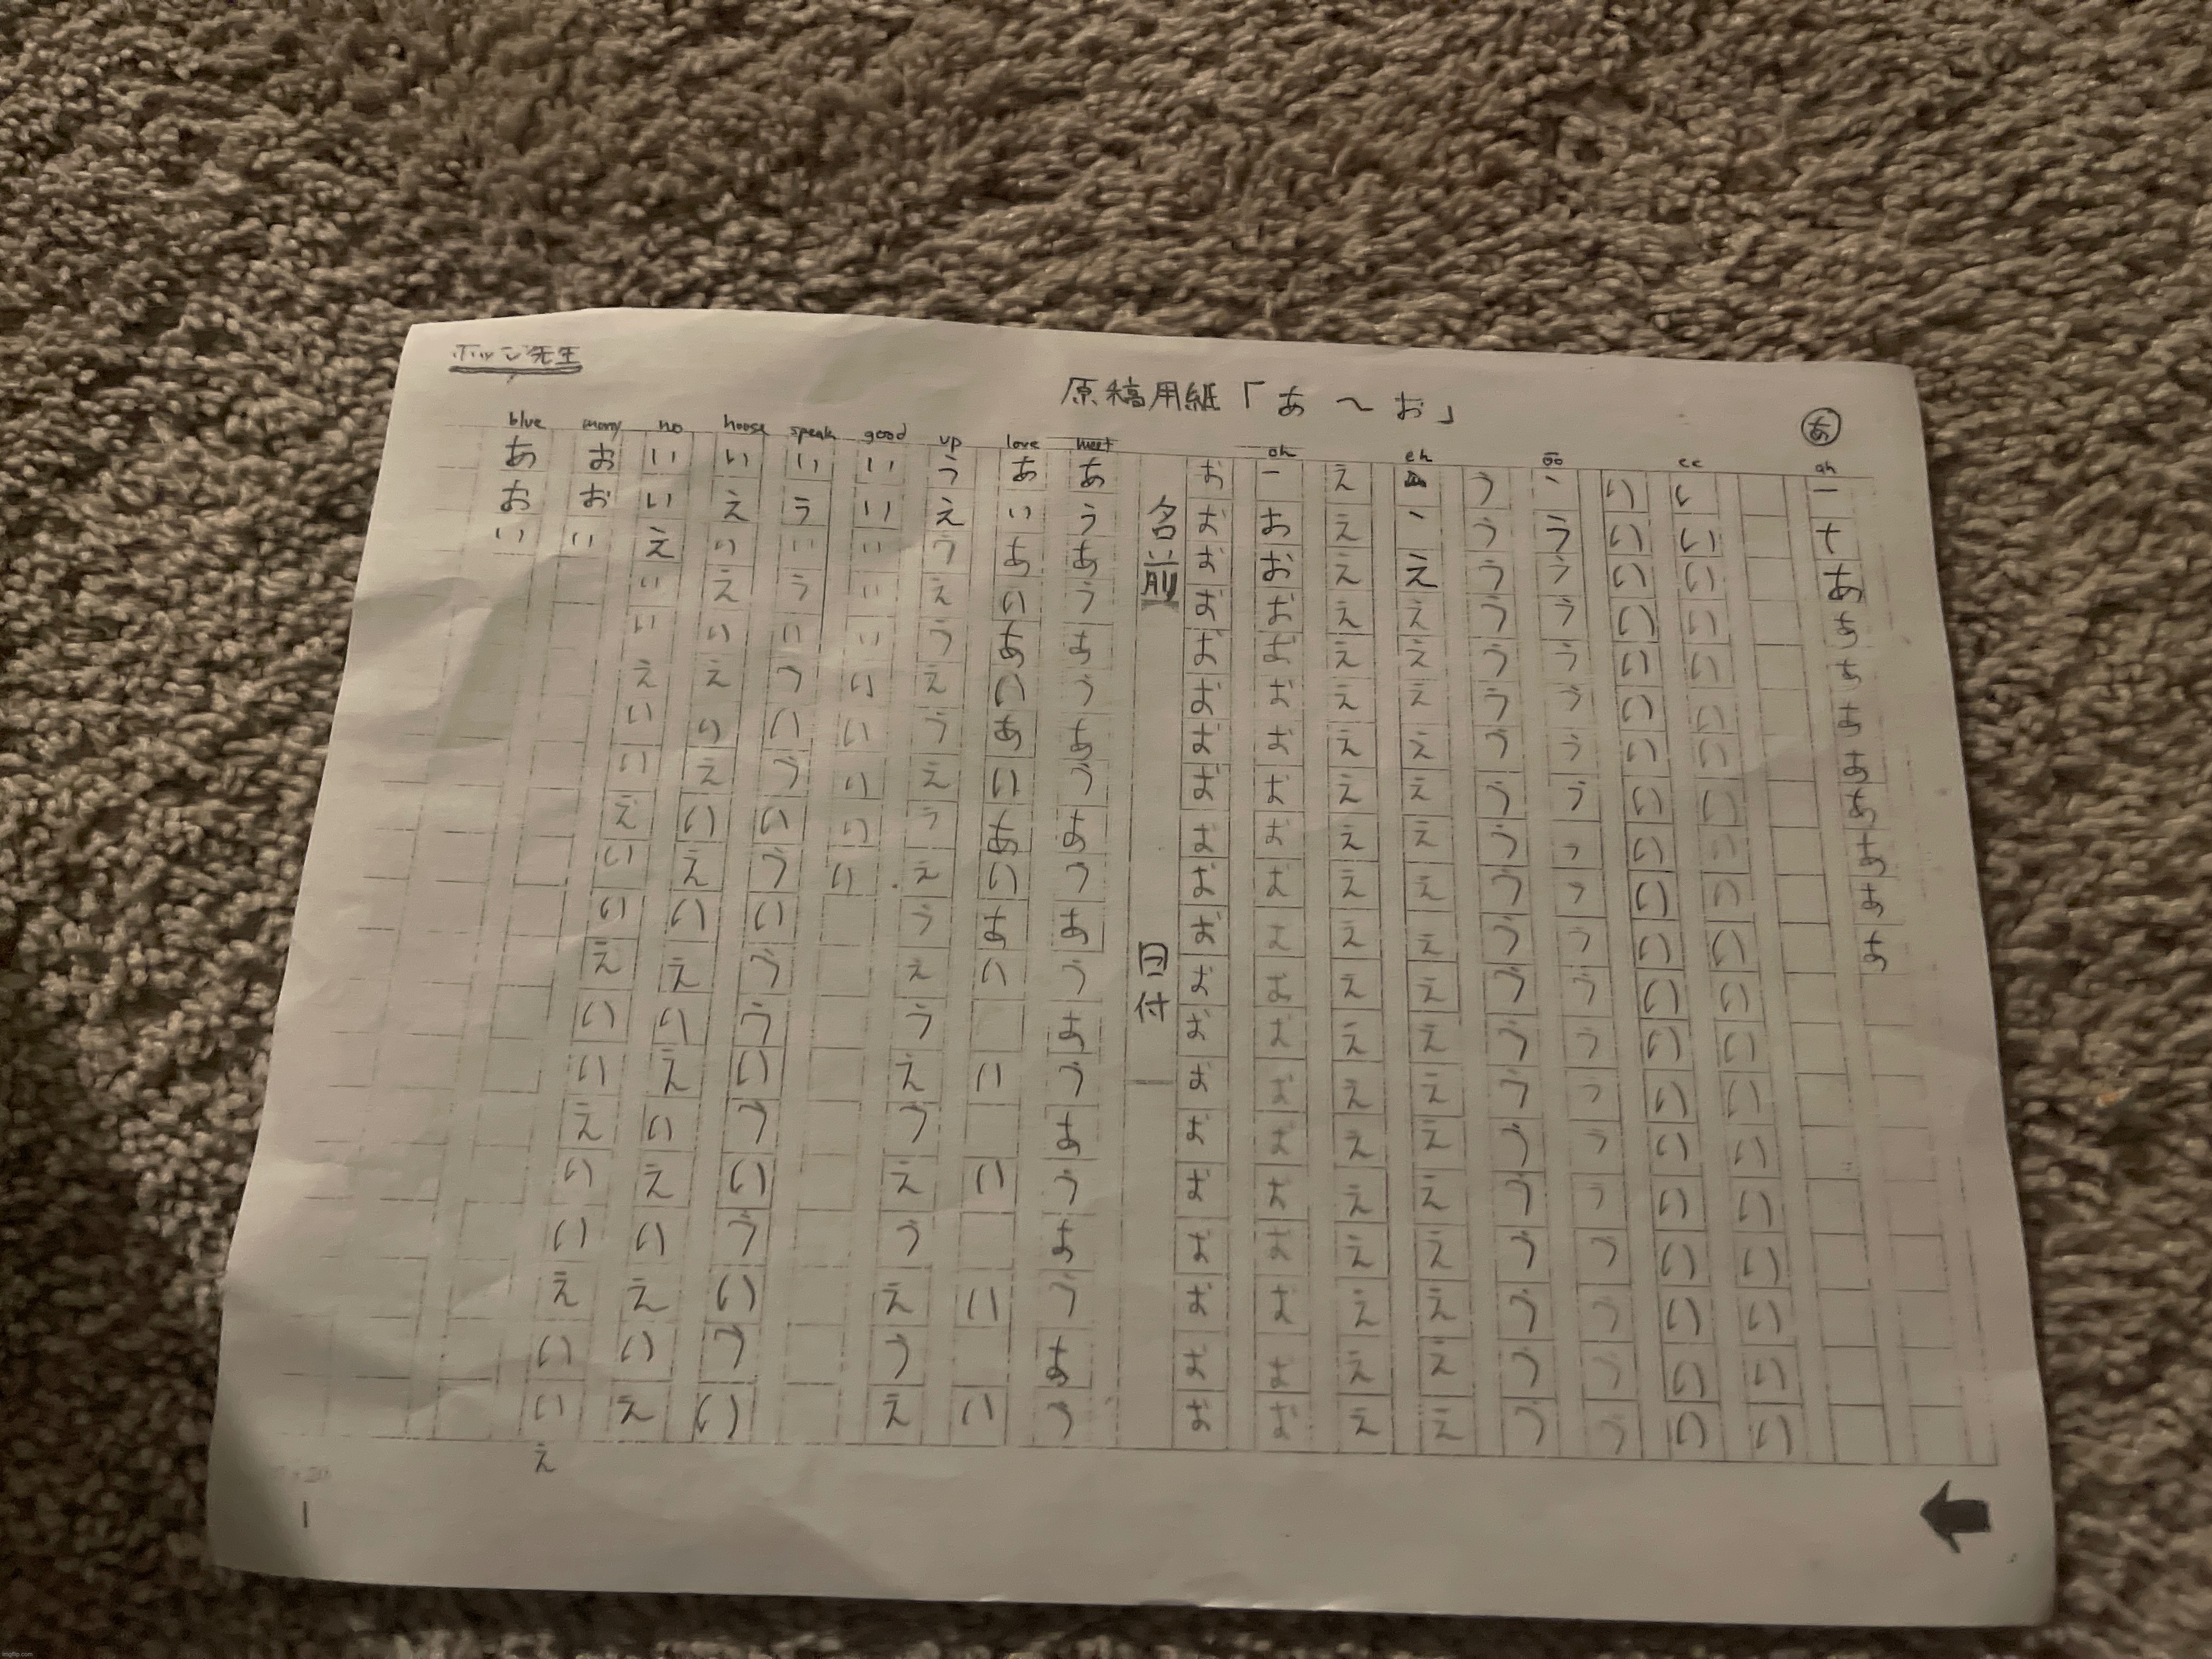 ホッジ先生
原稿用紙「あ〜お」
あ
ah
一十あああああああああ
ee
いいいいいいいいいいいいいいいいいいいい
いいいいいいいいいいいいいいいいいいいい
oo
丶ううううううううううううううううううう
うううううううううううううううううううう
eh
丶ええええええええええええええええええ
ええええええええええええええええええええ
oh
一おおおおおおおおおおおおおおおおおおお
おおおおおおおおおおおおおおおおおおおお
名前 日付
meet
あうあうあうあうあうあうあうあうあうあう
love
あいあいあいあいあいあい い い い い
up
うえうえうえうえうえうえうえうえうえうえ
good
いいいいいいいいいい
speak
いういういういういういうういういういうい
house
いえいえいえいえいえいえいえいえいえいえ
no
いいえいいえいいえいいえいいえいいえいいえ
many
おおい
blue
あおい
imgflip.com